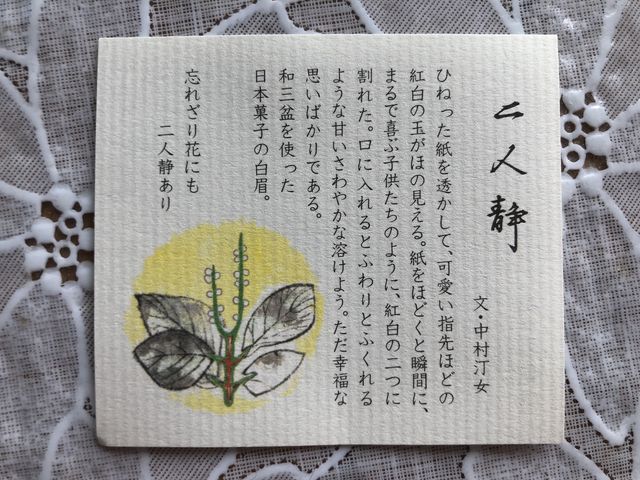 二人静
文・中村汀女
ひねった紙を透かして、可愛い指先ほどの
紅白の玉がほの見える。紙をほどくと瞬間に、
まるで喜ぶ子供たちのように、紅白の二つに
割れた。口に入れるとふわりとふくれる
ような甘いさわやかな溶けよう。ただ幸福な
思いばかりである。
和三盆を使った
日本菓子の白眉。
忘れざり花にも
二人静あり